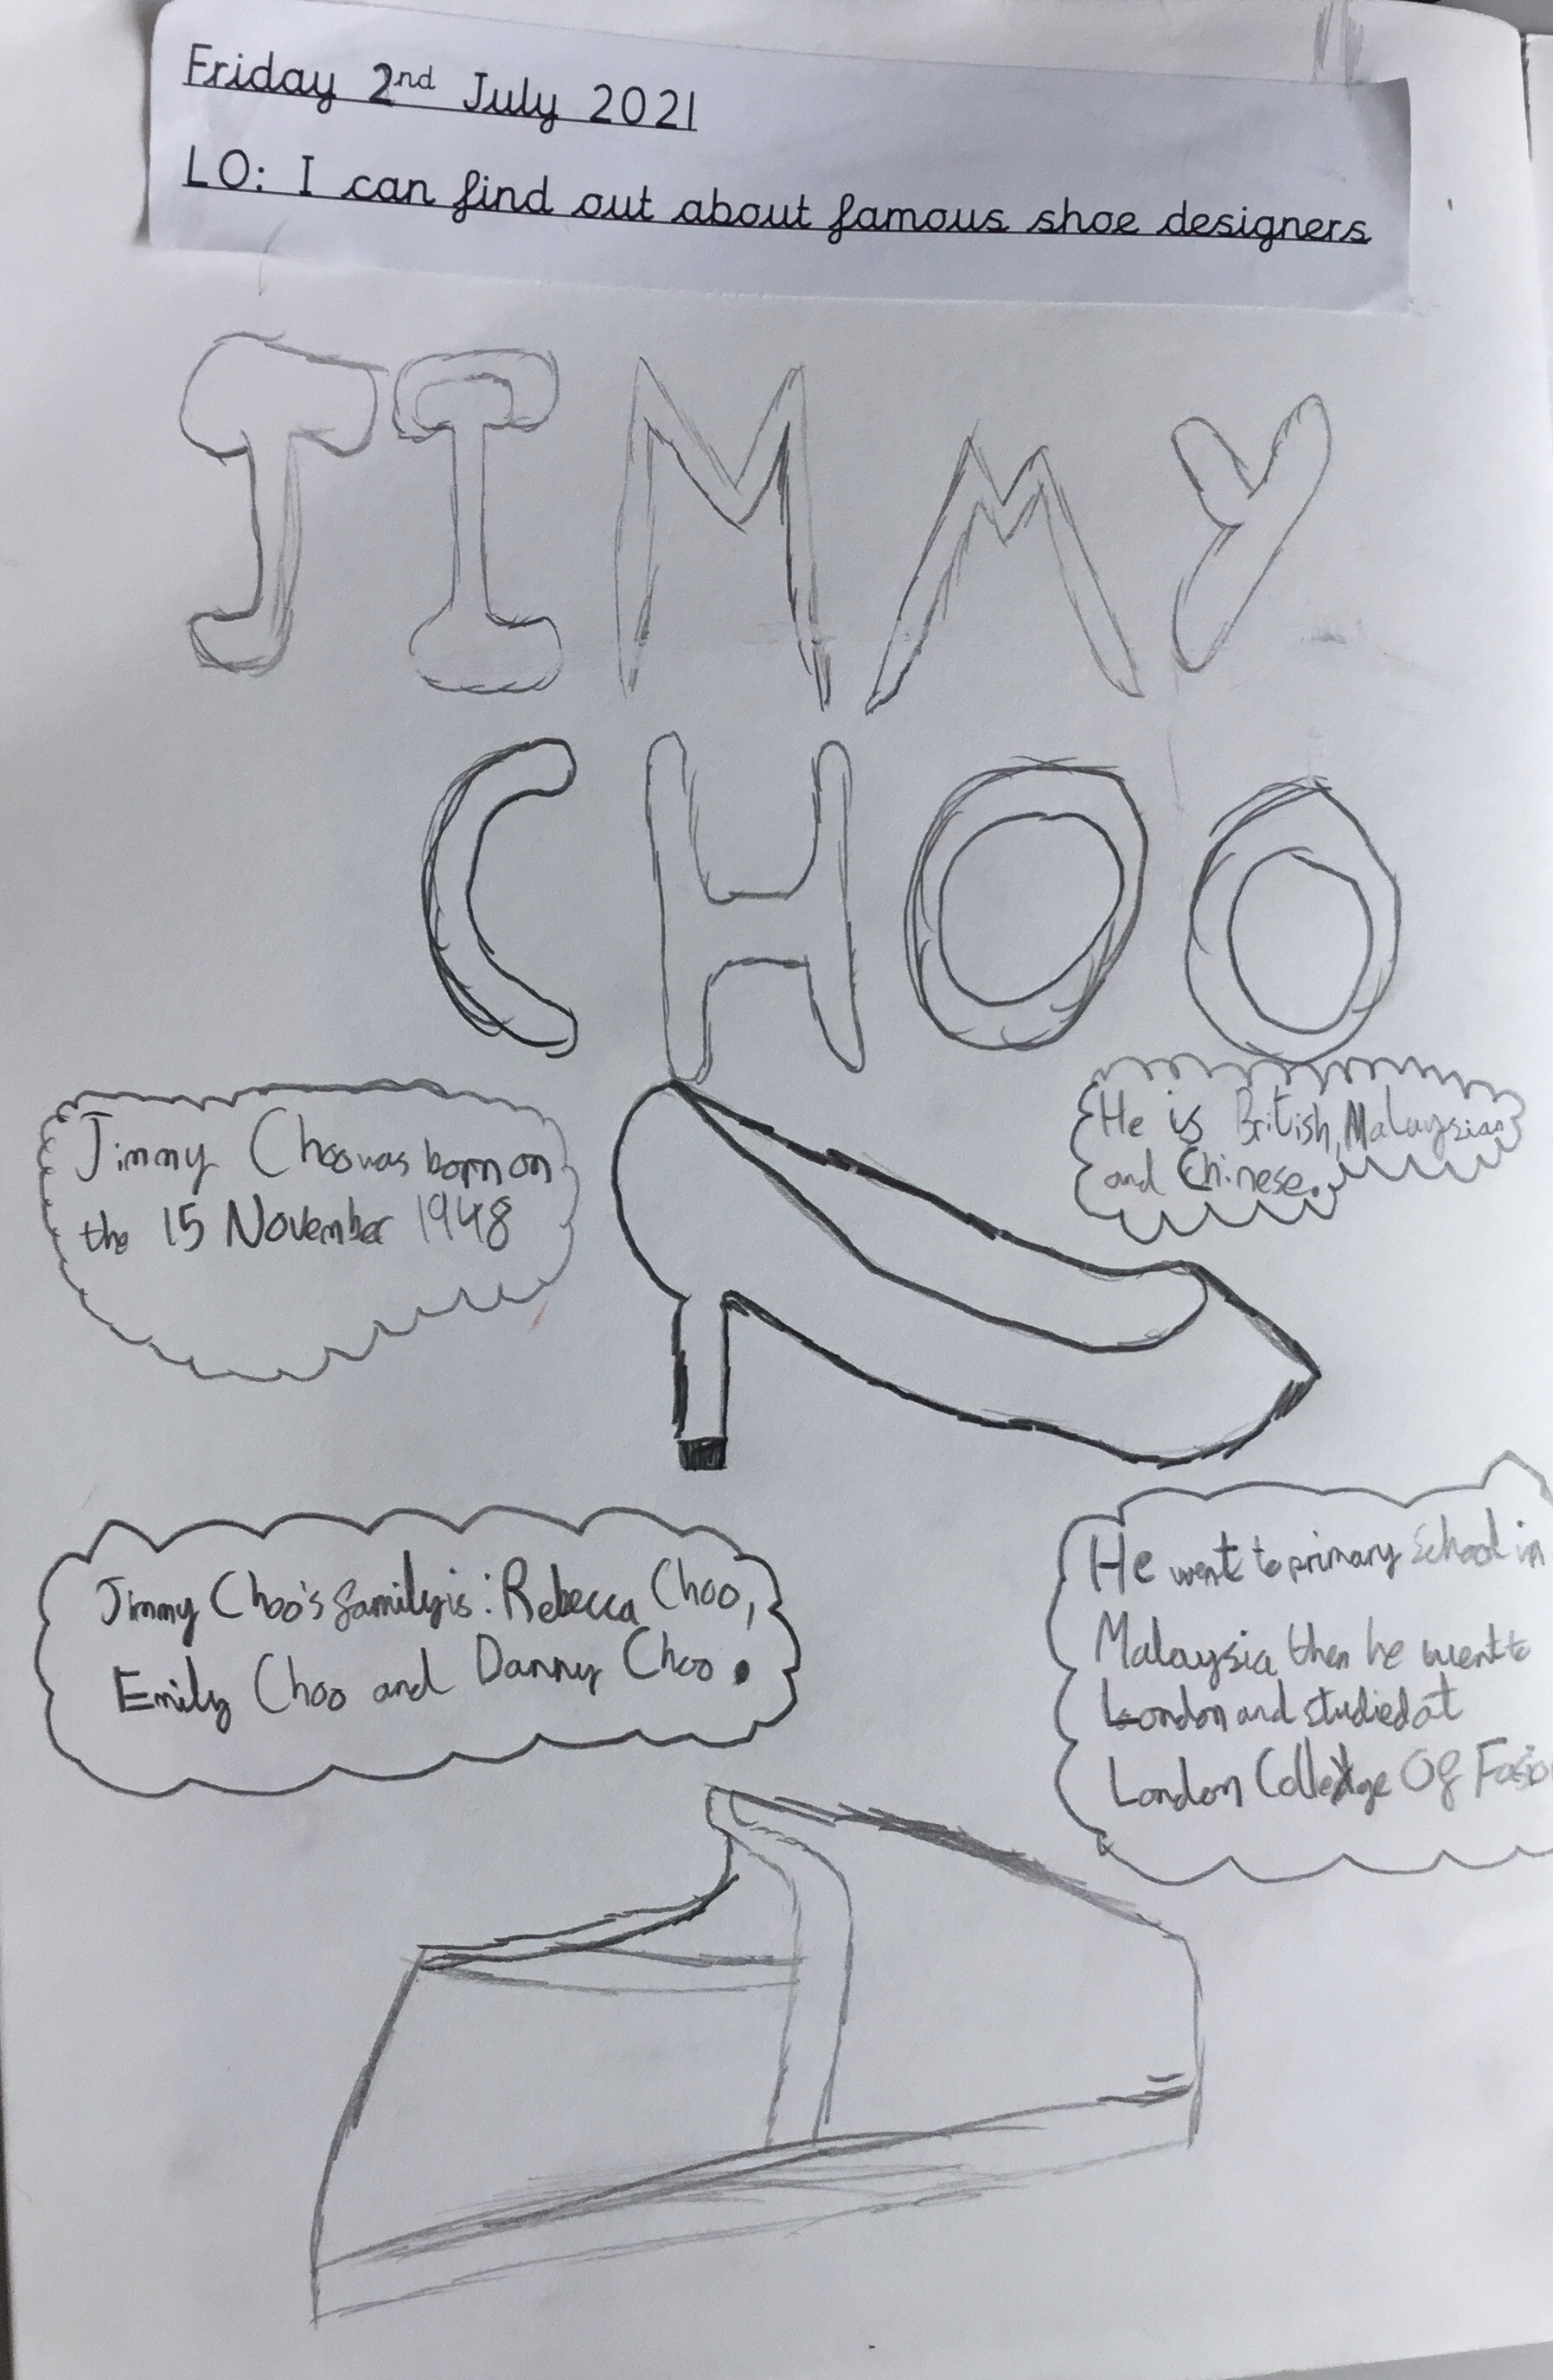 Friday 2nd July 2021
LO: I can find out about famous shoe designers
JIMMY
CHOO
Jimmy Choo was born on
the 15 November 1948
He is British, Malaysian
and Chinese.
Jimmy Choo's family is: Rebecca Choo,
Emily Choo and Danny Choo.
He went to primary School in
Malaysia then he went to
London and studied at
London Colledge Of Fasio